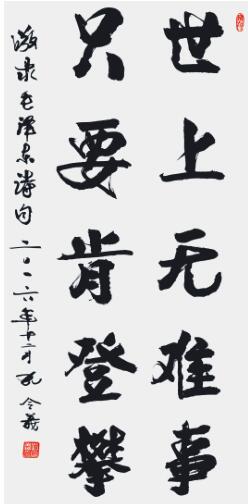 世上无难事
只要肯登攀
激录毛泽东诗句二〇一六年十二月孔令义